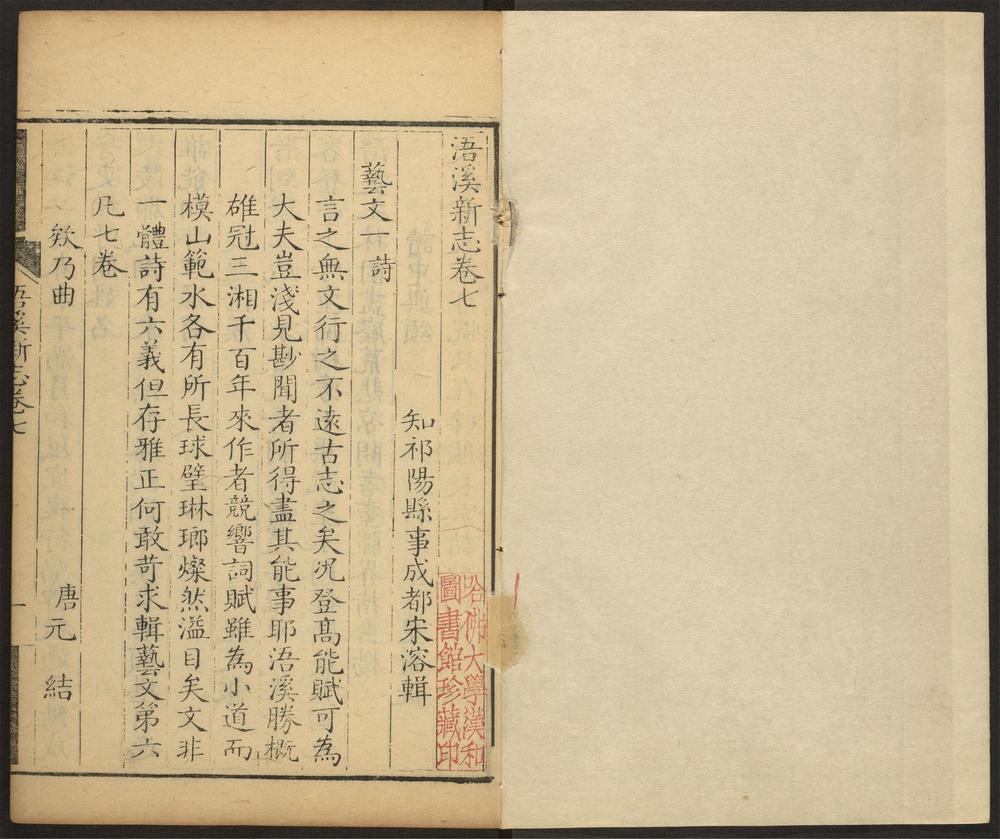 浯溪新志卷七
知祁陽縣事成都宋溶輯
藝文一 詩
言之無文行之不遠古志之矣况登髙能賦可為
大夫豈淺見尠聞者所得盡其能事耶浯溪勝概
雄冠三湘千百年來作者競響詞賦雖為小道而
模山範水各有所長球璧琳瑯燦然溢目矣文非
一體詩有六義但存雅正何敢苛求輯藝文第六
凡七卷
欸乃曲 唐元 結
浯溪新志卷七 一
哈佛大學漢和
圖書館珍藏印